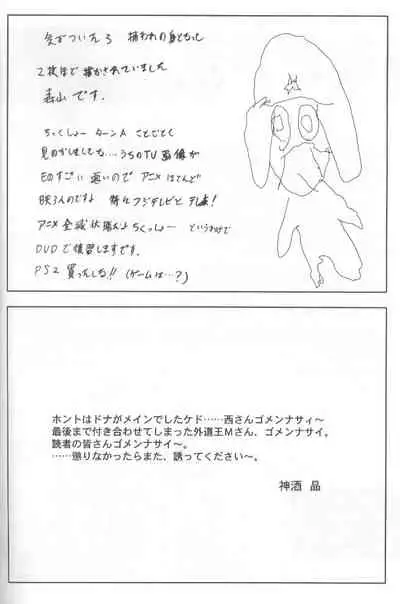 気がついたら 捕われの身となって
2枚ほど描かされていました
森山です.
ちっくしょー ターンA ことごとく
見のがしましても…うちのTV画像が
EのすごいE遠いので アニメはほとんど
アニメ全滅状態んよちくっしょー というわけで
DVDで復習しますです.
PS2 買ったしる!! (ゲームは…?)
ホントはドナがメインでしたケド……西さんゴメンナサィ～
最後まで付き合わせてしまった外道王Mさん、ゴメンナサイ。
読者の皆さんゴメンナサイ～。
……懲りなかったらまた、誘ってください～。
神酒 晶